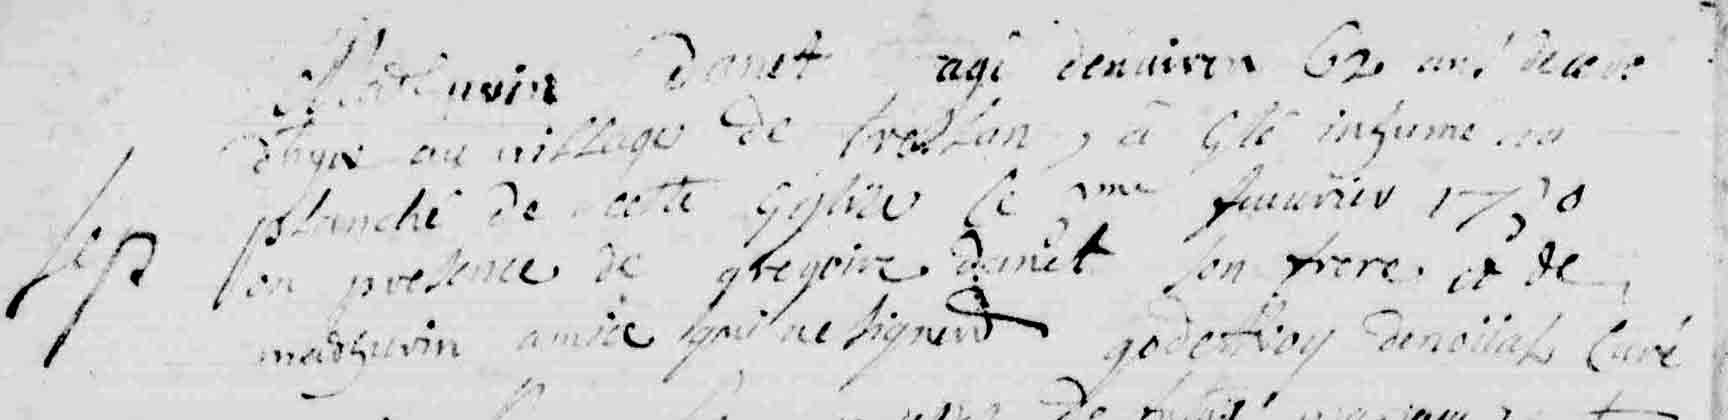 Mathurin Danet agé denuiron 62 ans decede
dhyer au village de treslan, à Esté inhume en
planché de cette Eglise le 2me feuurier 1730
Sep en presence de gregoire danet son frere et de
mathurin amice qui ne signent godeffroy denoüal Curé
de